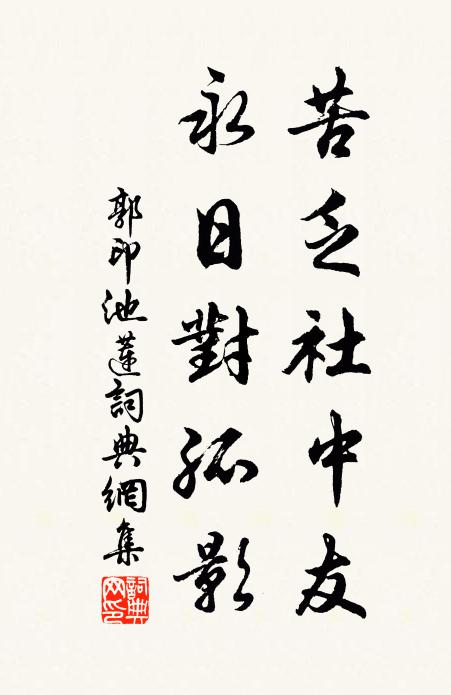 苦乏社中友
永日對孤影
郭印池蓮詞典網集
詞典網印